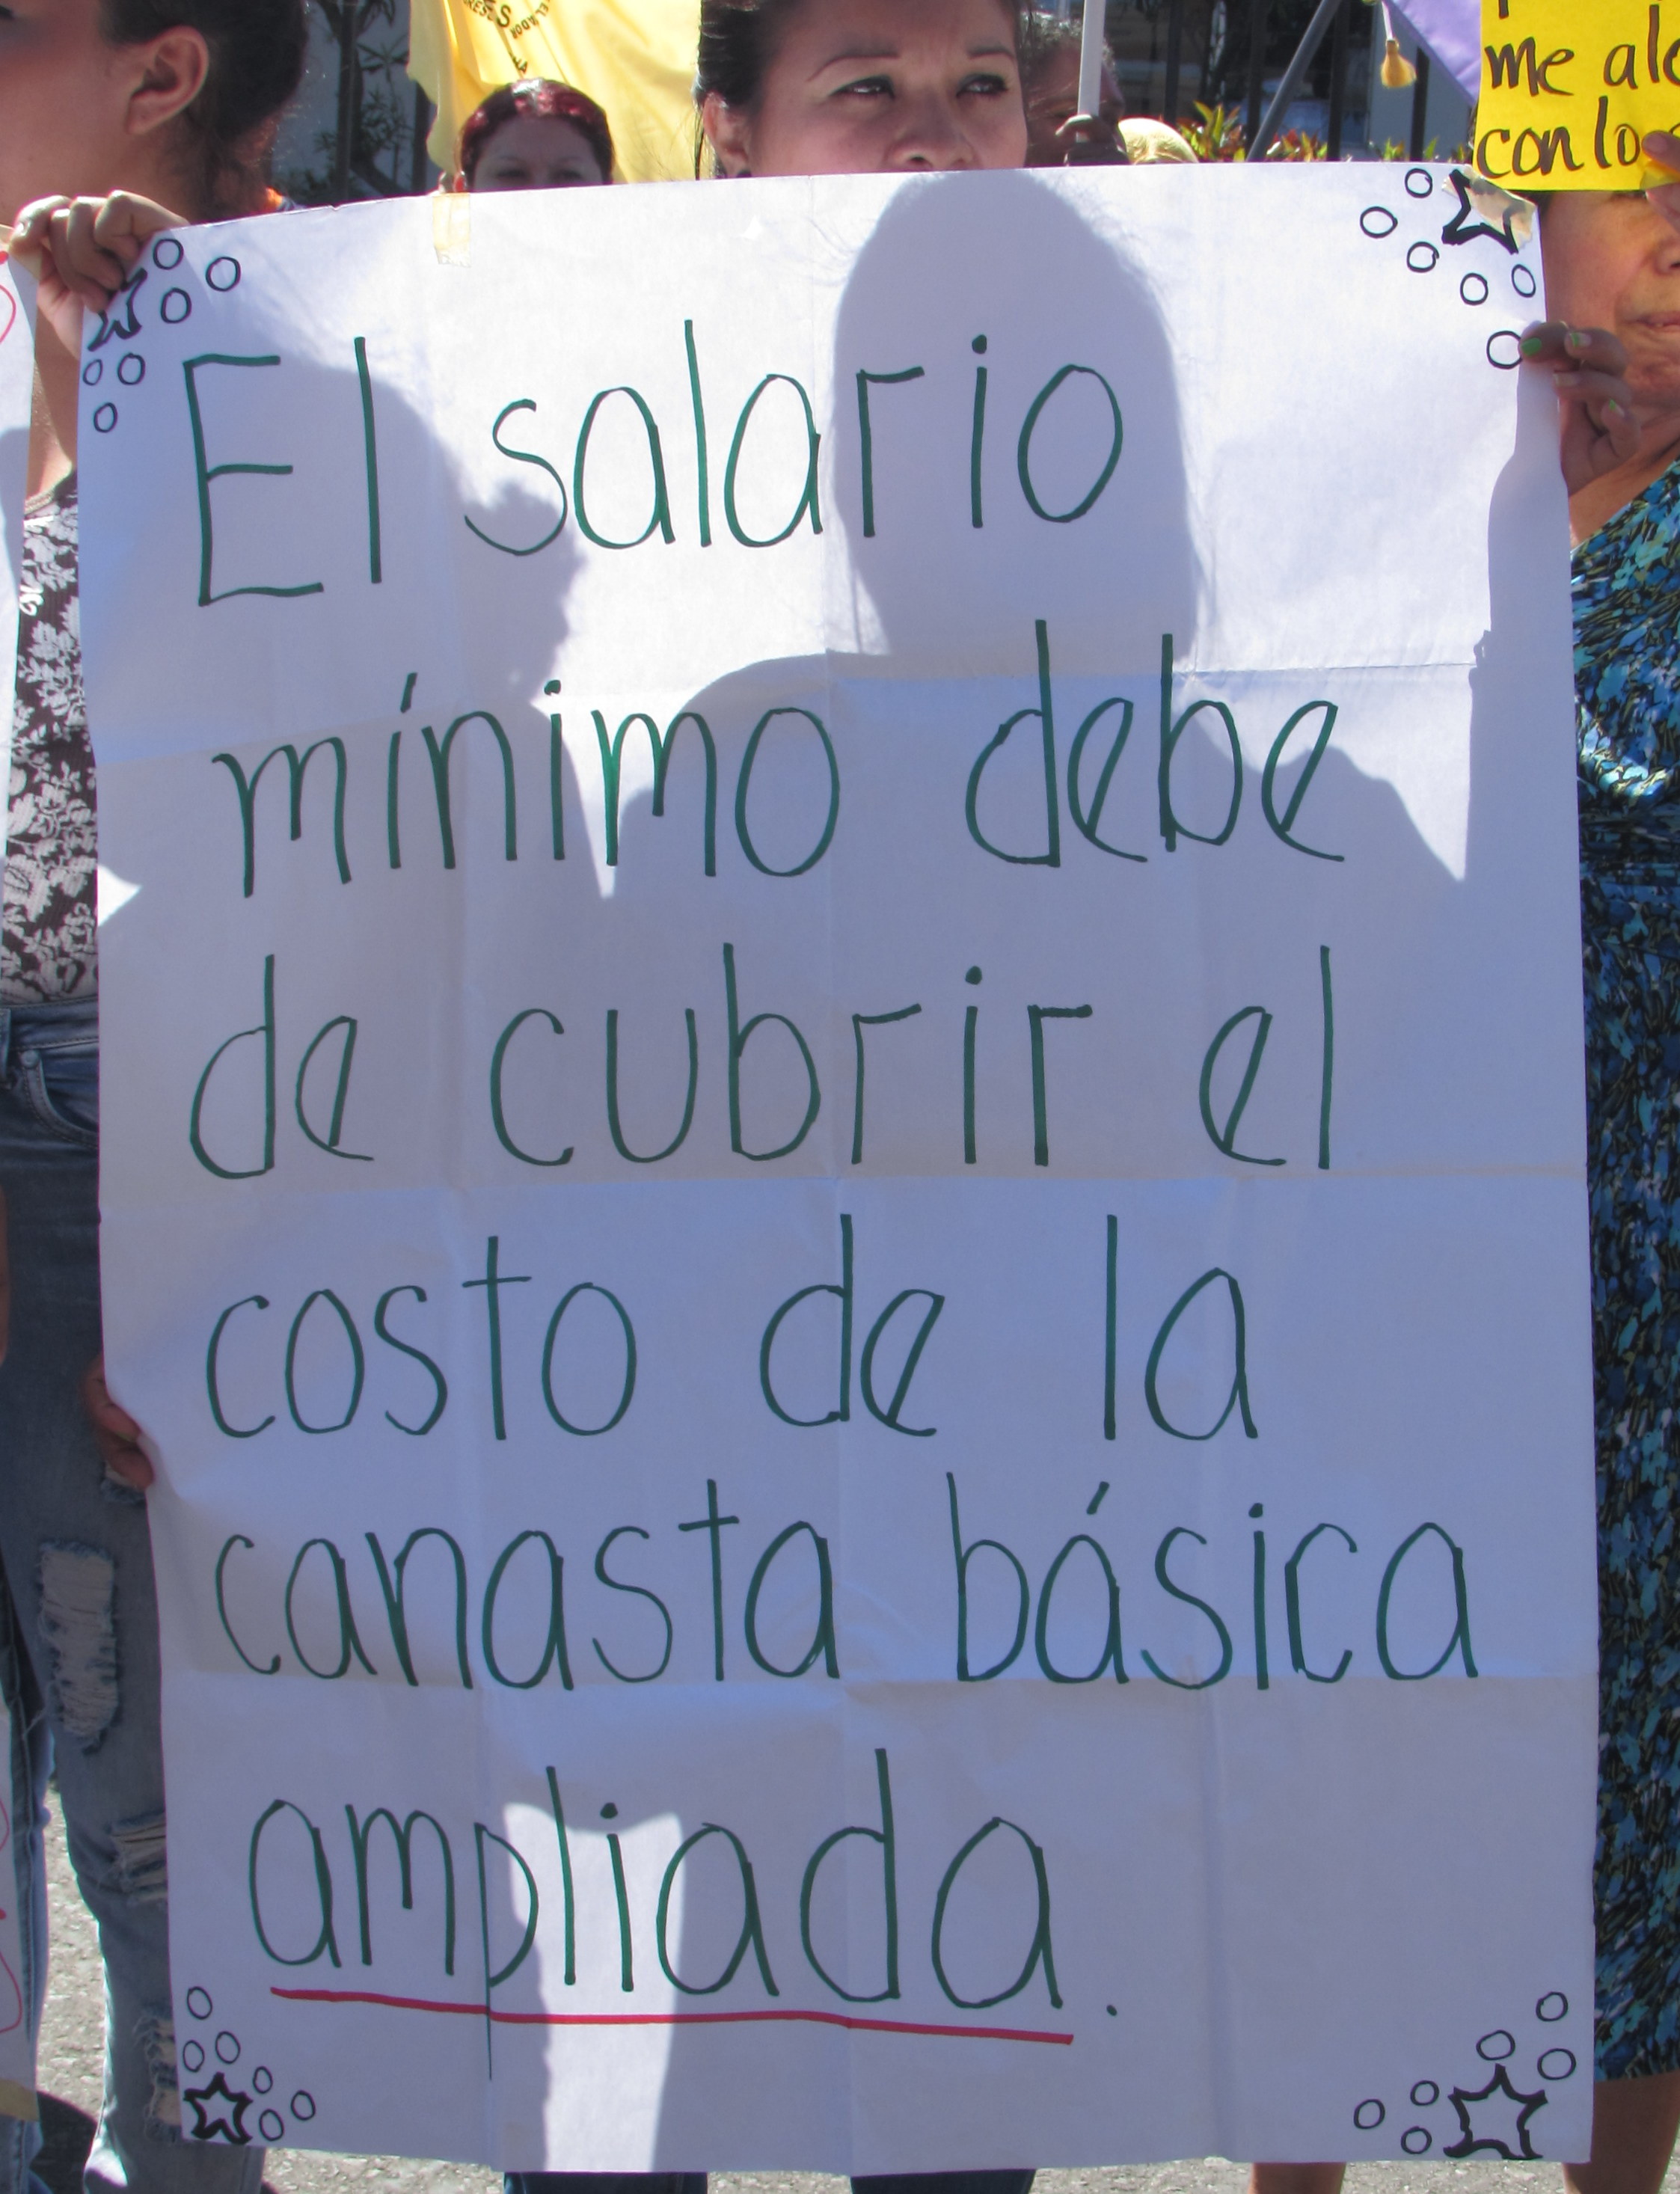 El salario
mínimo debe
de cubrir el
costo de la
canasta básica
ampliada.
EL SALVADOR
me
con lo